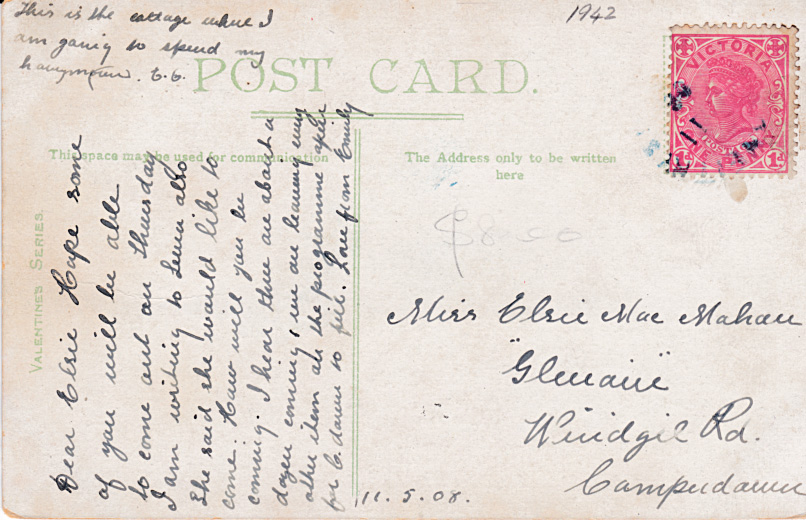 This is the cottage where I
am going to spend my
honeymoon. E.E.
1942
POST CARD.
VICTORIA
POSTAGE
ONE PENNY
1D
This space may be used for communication
The Address only to be written
here
VALENTINES SERIES.
$8.00
Dear Elsie Hope some
of you will be able
to come out on thursday
I am writing to Lewin also
She said she would like to
come. How will you be
coming. I hear there are about a
dozen coming, we are leaving every
other item on the programme
for C. down to fill. Love from Emily
11.5.08.
Miss Elsie Mac Mahon
"Glenaire"
Windgil Rd.
Camperdown